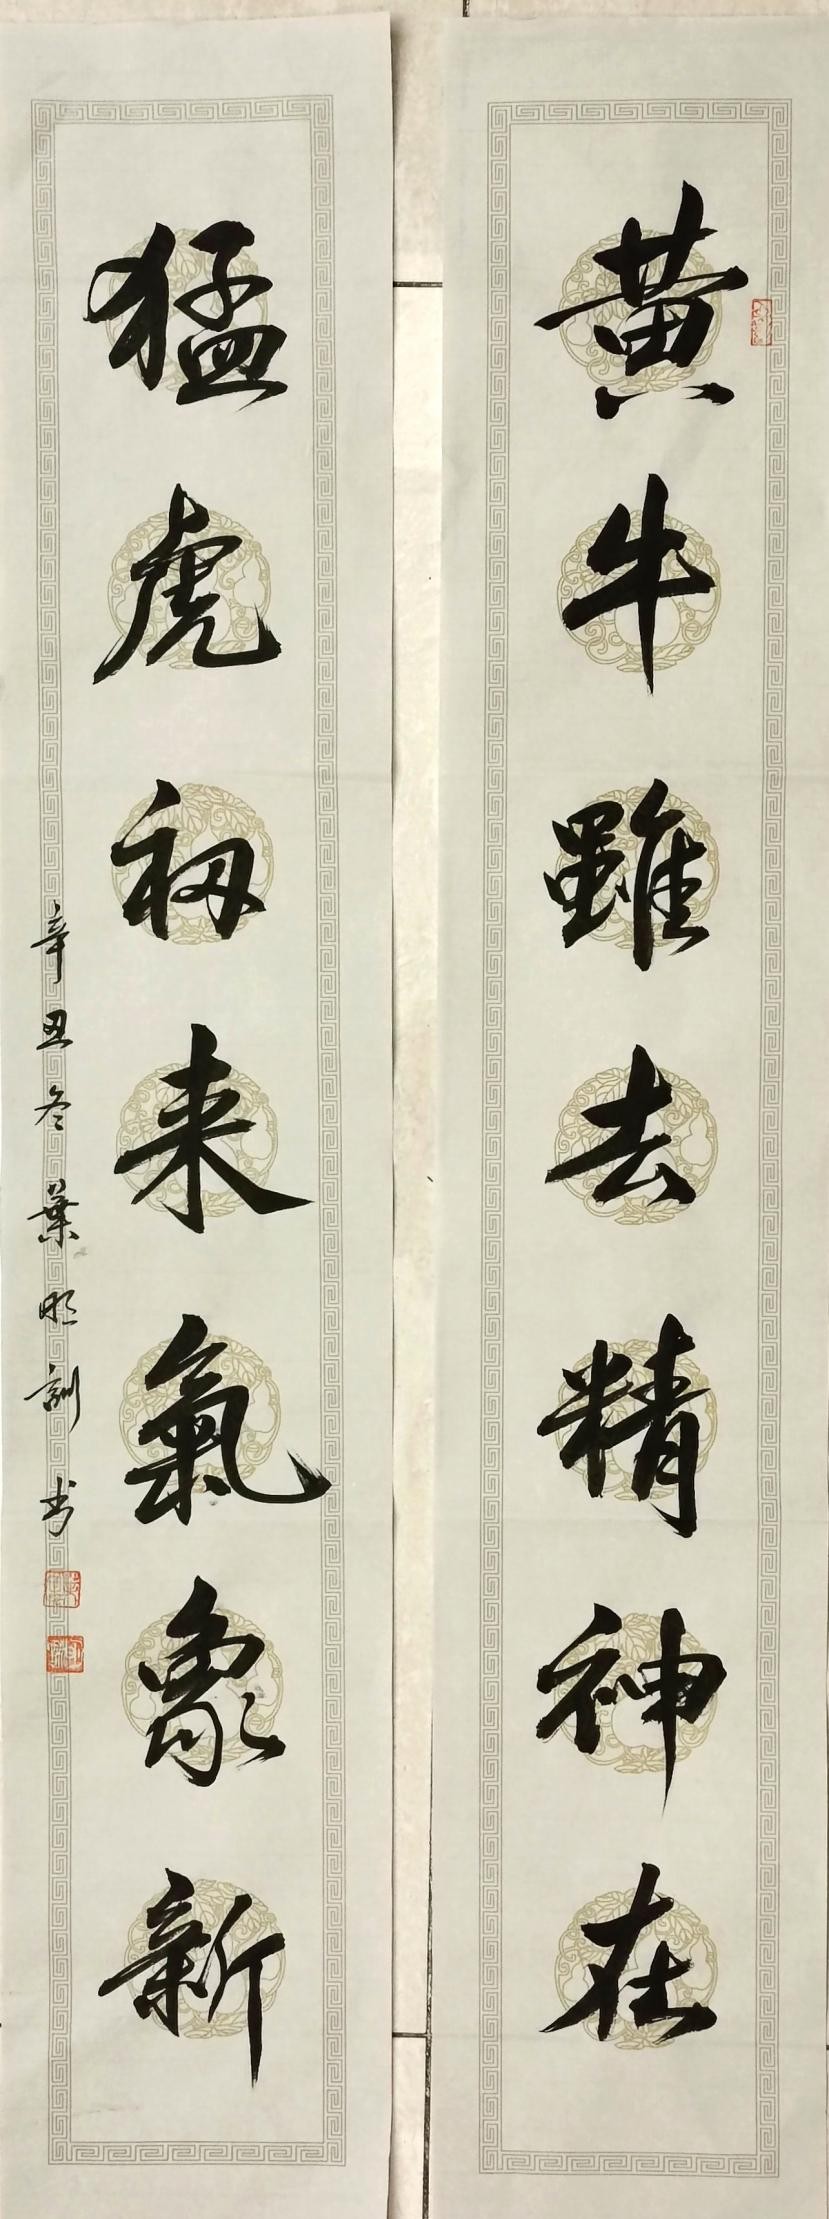 黄牛雖去精神在
猛虎初来氣象新
辛丑冬葉明訓书